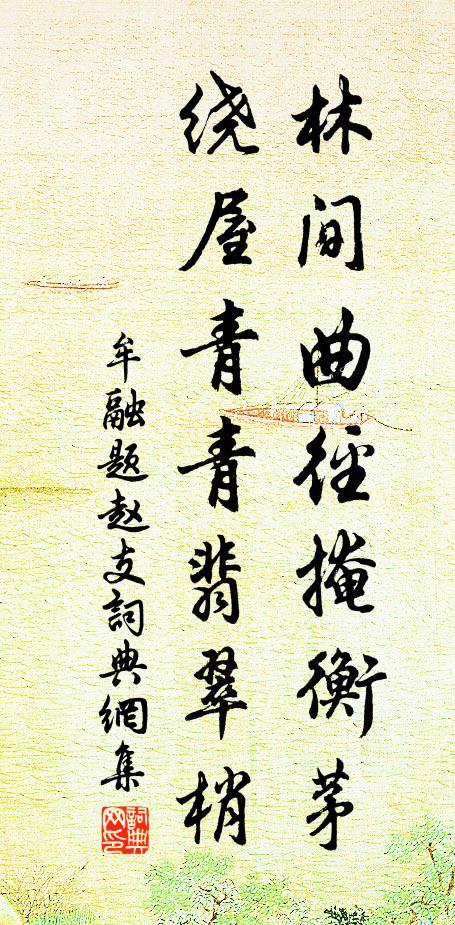 林间曲径掩衡茅
绕屋青青翡翠梢
牟融题赵支詞典網集
詞典网印